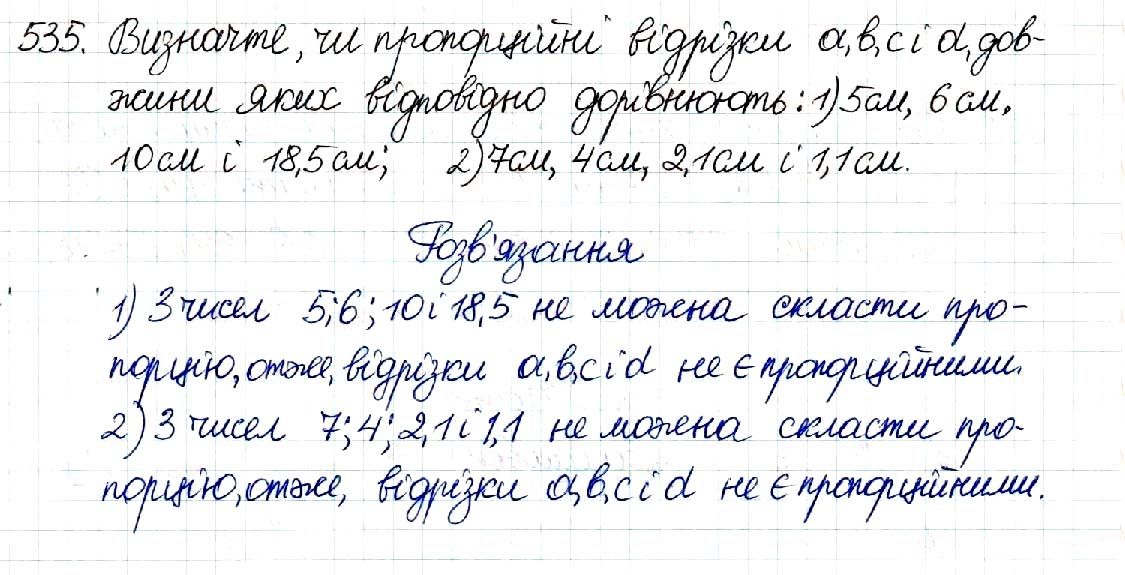 535. Визначте, чи пропорційні відрізки a, b, c і d, дов-
жини яких відповідно дорівнюють: 1) 5 см, 6 см,
10 см і 18,5 см; 2) 7 см, 4 см, 2,1 см і 1,1 см.
Розв'язання
1) З чисел 5; 6; 10 і 18,5 не можна скласти про-
порцію, отже, відрізки a, b, c і d не є пропорційними.
2) З чисел 7; 4; 2,1 і 1,1 не можна скласти про-
порцію, отже, відрізки a, b, c і d не є пропорційними.